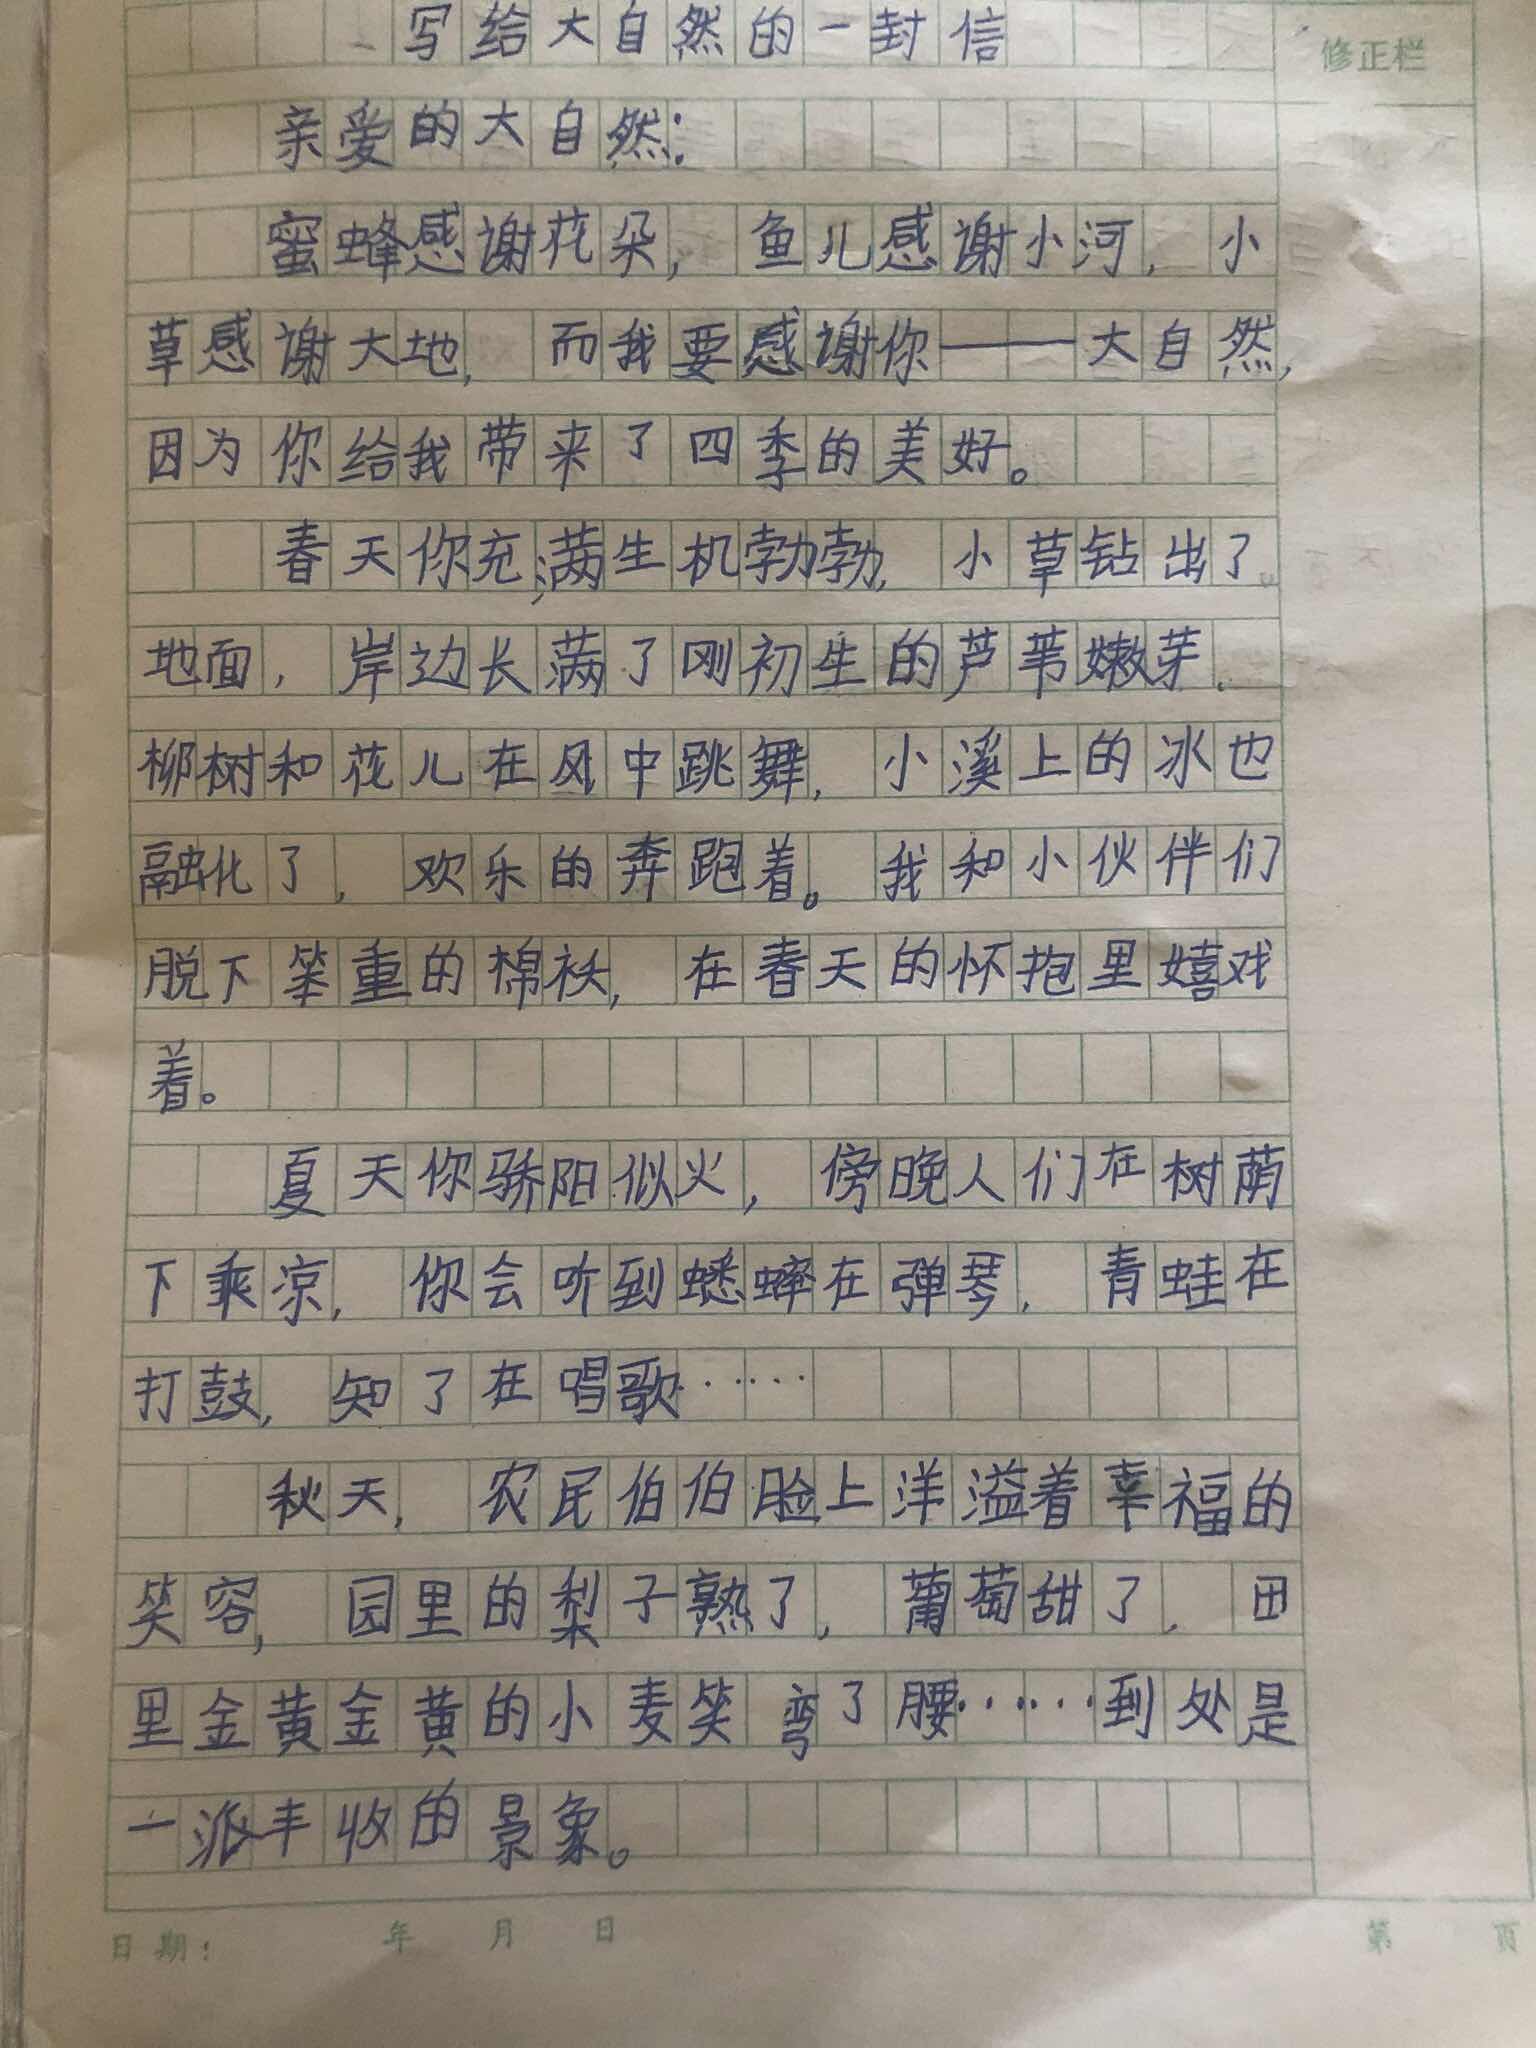 写给大自然的一封信
修正栏
亲爱的大自然：
蜜蜂感谢花朵，鱼儿感谢小河，小
草感谢大地，而我要感谢你——大自然，
因为你给我带来了四季的美好。
春天你充满生机勃勃，小草钻出了
地面，岸边长满了刚初生的芦苇嫩芽，
柳树和花儿在风中跳舞，小溪上的冰也
融化了，欢乐的奔跑着。我和小伙伴们
脱下笨重的棉袄，在春天的怀抱里嬉戏
着。
夏天你骄阳似火，傍晚人们在树荫
下乘凉，你会听到蟋蟀在弹琴，青蛙在
打鼓，知了在唱歌……
秋天，农民伯伯脸上洋溢着幸福的
笑容，园里的梨子熟了，葡萄甜了，田
里金黄金黄的小麦笑弯了腰……到处是
一派丰收的景象。
日期： 年 月 日 第 页